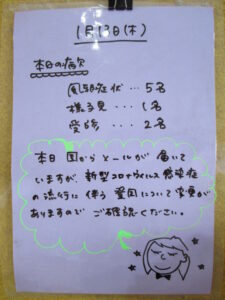 1月13日(木)
本日の病欠
風邪症状…5名
様子見…1名
受診…2名
本日 園からメールが届いて
いますが、新型コロナウィルス感染症
の流行に伴う登園について変更が
ありますので ご確認ください。